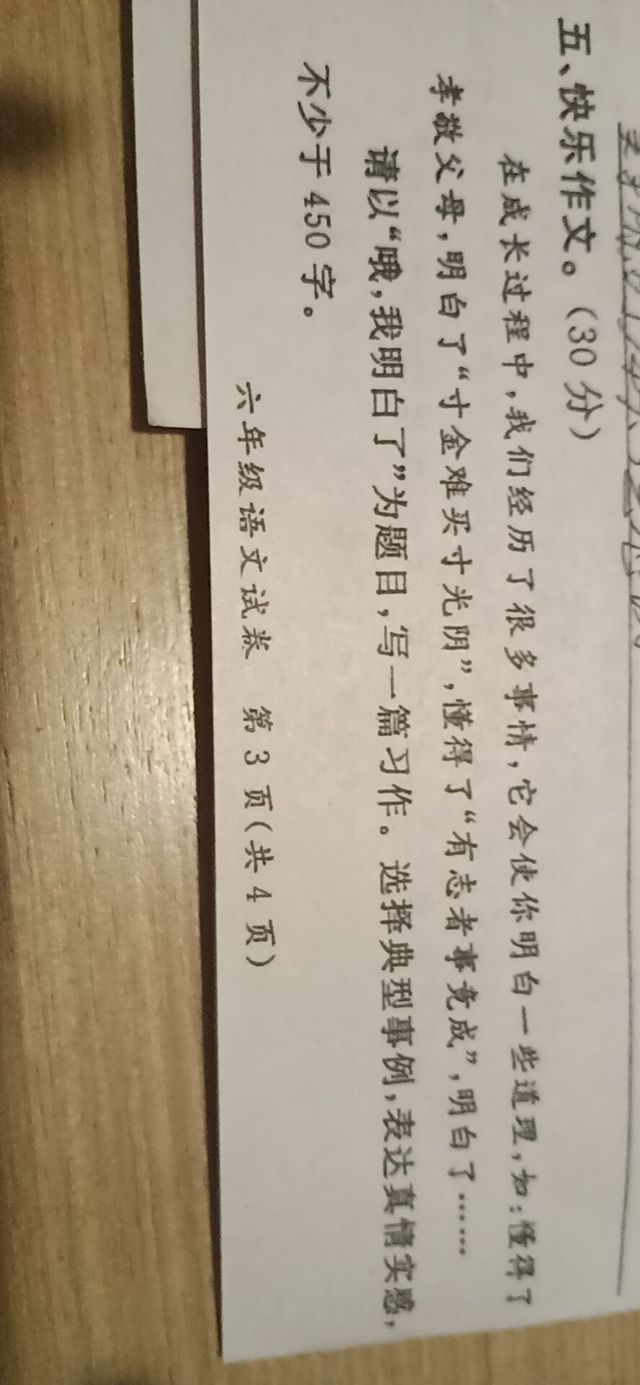 五、快乐作文。(30分)
在成长过程中,我们经历了很多事情,它会使你明白一些道理,如:懂得了
孝敬父母,明白了“寸金难买寸光阴”,懂得了“有志者事竟成”,明白了……
请以“哦,我明白了”为题目,写一篇习作。选择典型事例,表达真情实感,
不少于450字。
六年级语文试卷 第3页(共4页)